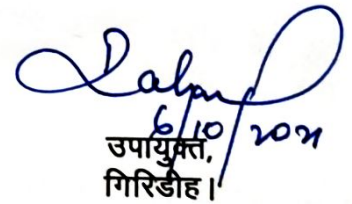 6/10/2021
उपायुक्त,
गिरिडीह।